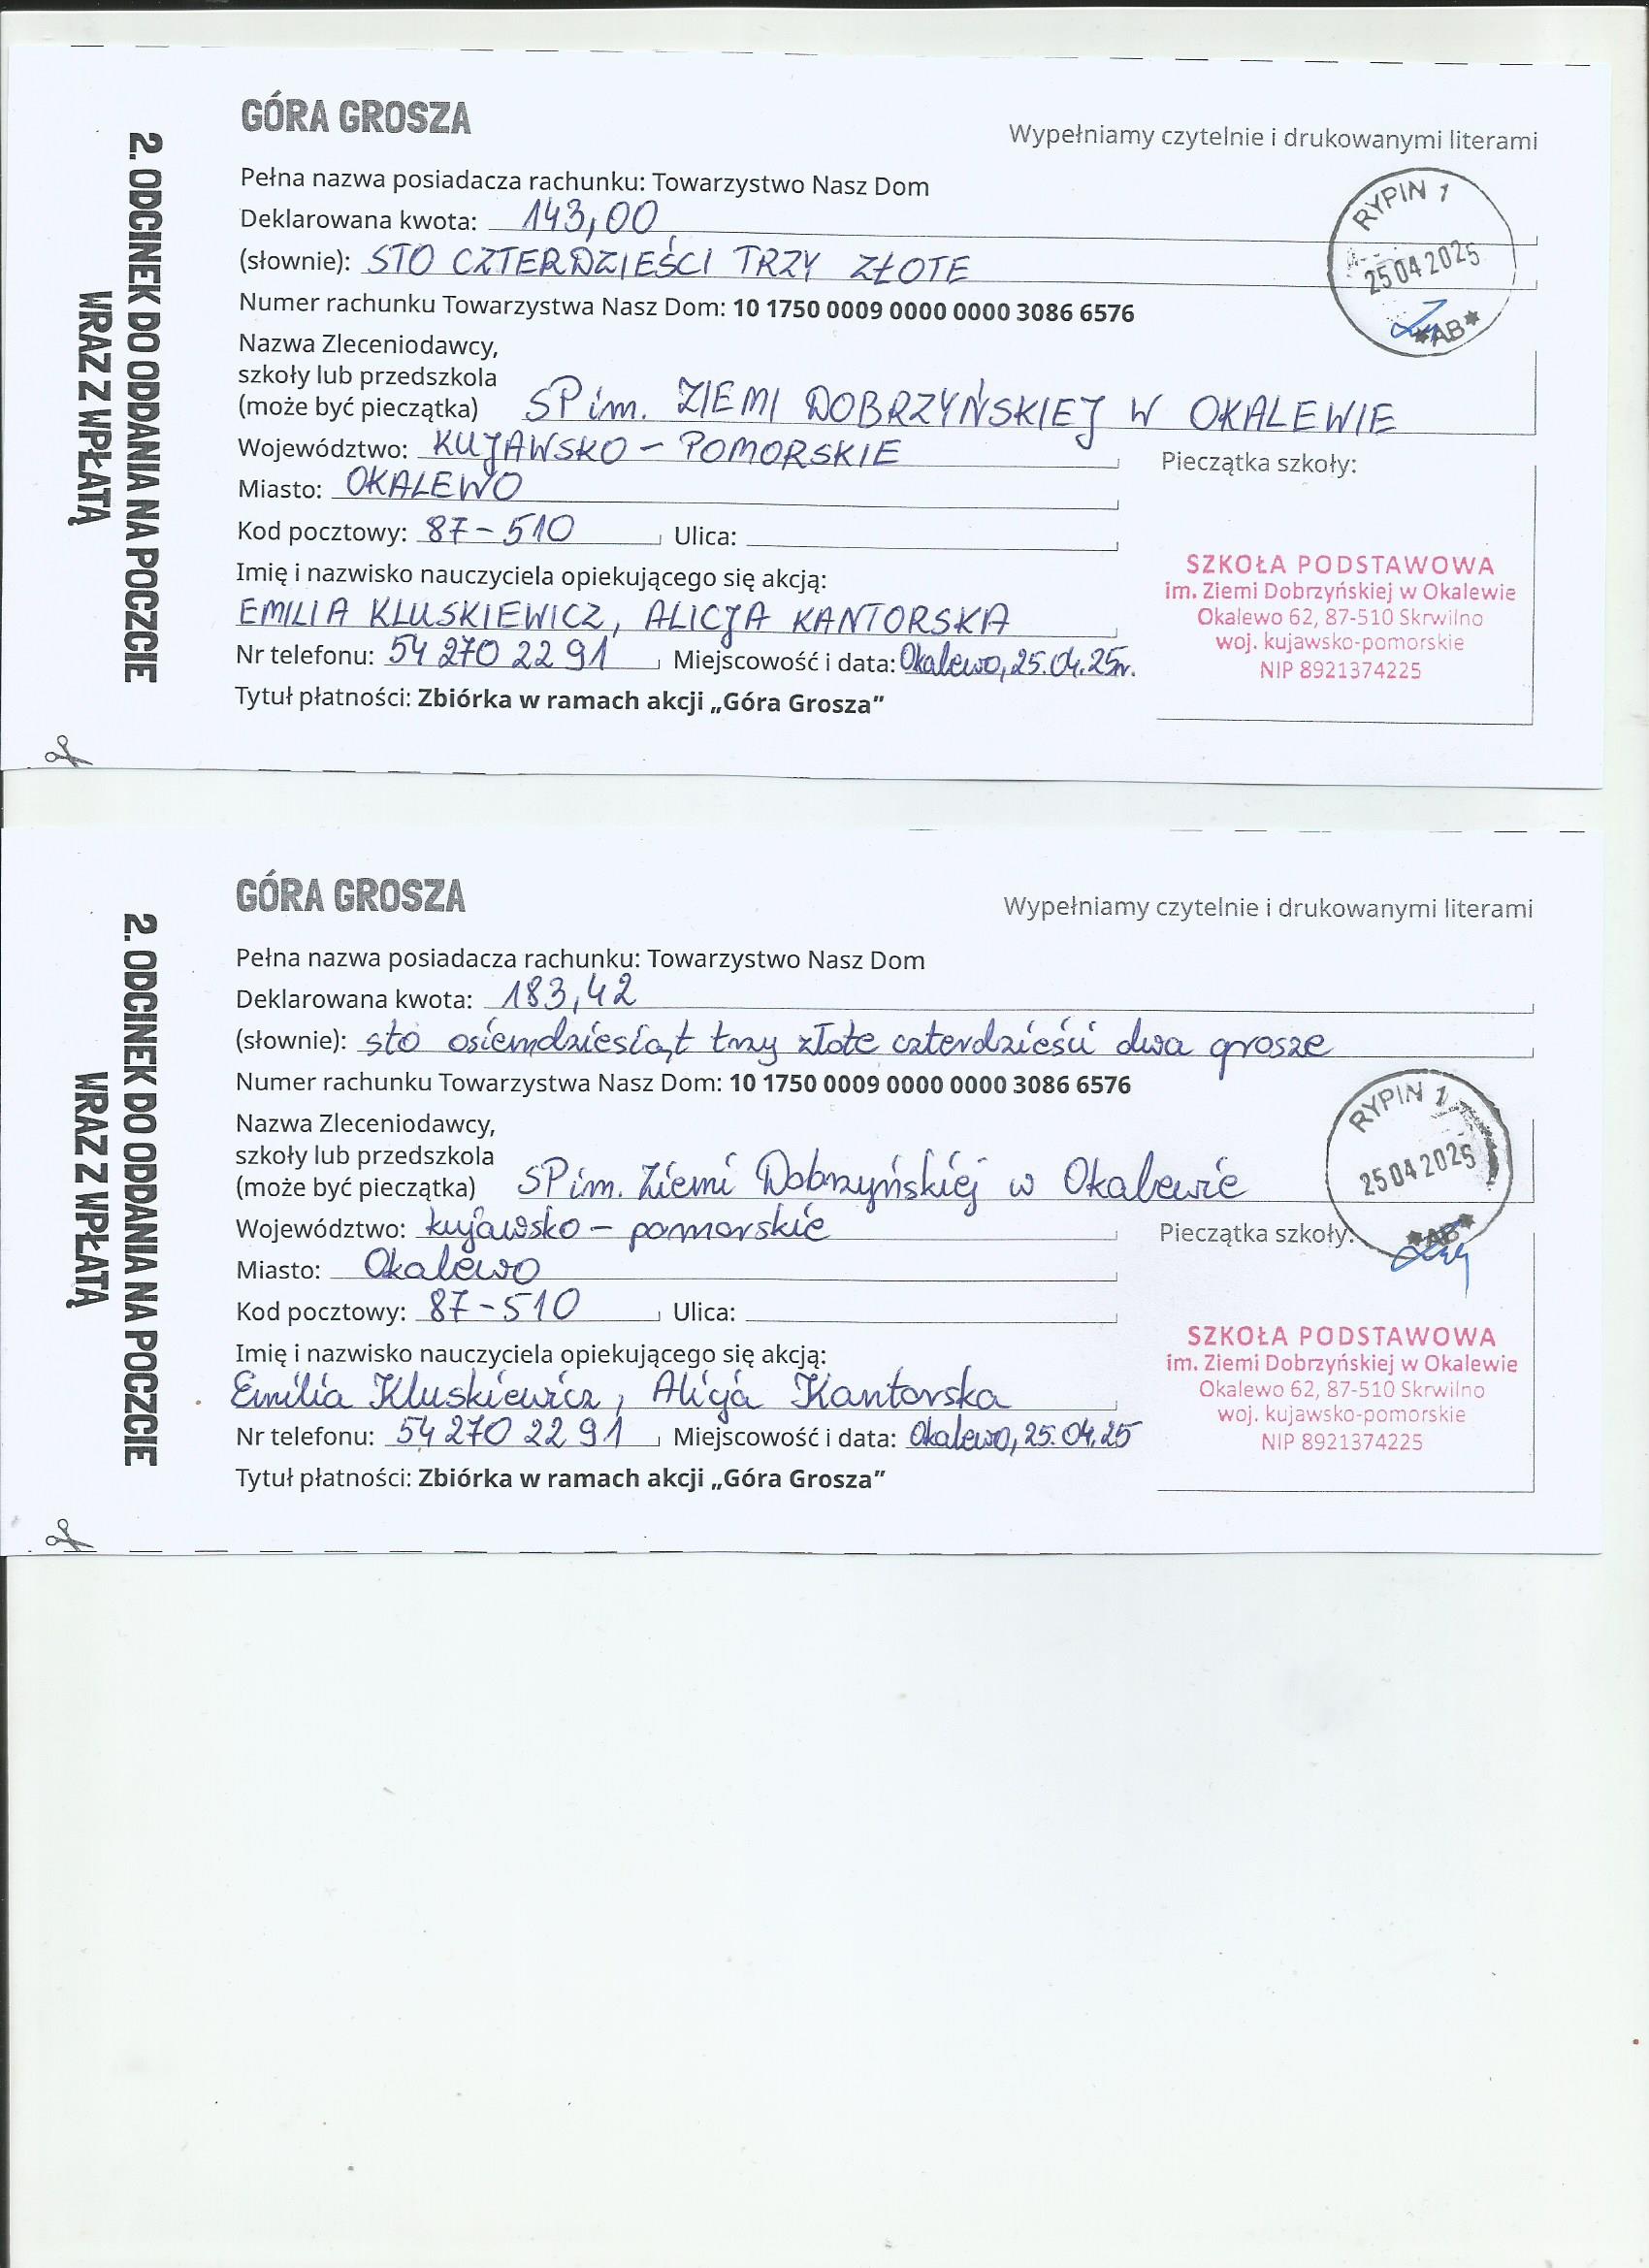 GÓRA GROSZA
Wypełniamy czytelnie i drukowanymi literami
2. ODCINEK DO ODDANIA NA POCZCIE
WRAZ Z WPŁATĄ
Pełna nazwa posiadacza rachunku: Towarzystwo Nasz Dom
Deklarowana kwota: 143,00
(słownie): STO CZTERDZIEŚCI TRZY ZŁOTE
RYPIN 1
25042025
*AB*
Numer rachunku Towarzystwa Nasz Dom: 10 1750 0009 0000 0000 3086 6576
Nazwa Zleceniodawcy,
szkoły lub przedszkola
(może być pieczątka) SP im. ZIEMI DOBRZYŃSKIEJ W OKALEWIE
Województwo: KUJAWSKO - POMORSKIE
Pieczątka szkoły:
Miasto: OKALEWO
Kod pocztowy: 87-510 Ulica:
Imię i nazwisko nauczyciela opiekującego się akcją:
EMILIA KLUSKIEWICZ, ALICJA KANTORSKA
Nr telefonu: 54 270 22 91 Miejscowość i data: Okalewo, 25.04.25r.
Tytuł płatności: Zbiórka w ramach akcji „Góra Grosza”
SZKOŁA PODSTAWOWA
im. Ziemi Dobrzyńskiej w Okalewie
Okalewo 62, 87-510 Skrwilno
woj. kujawsko-pomorskie
NIP 8921374225
GÓRA GROSZA
Wypełniamy czytelnie i drukowanymi literami
2. ODCINEK DO ODDANIA NA POCZCIE
WRAZ Z WPŁATĄ
Pełna nazwa posiadacza rachunku: Towarzystwo Nasz Dom
Deklarowana kwota: 183,42
(słownie): sto osiemdziesiąt trzy złote czterdzieści dwa grosze
Numer rachunku Towarzystwa Nasz Dom: 10 1750 0009 0000 0000 3086 6576
RYPIN 1
25042025
*AB*
Nazwa Zleceniodawcy,
szkoły lub przedszkola
(może być pieczątka) SP im. Ziemi Dobrzyńskiej w Okalewie
Województwo: kujawsko - pomorskie
Pieczątka szkoły:
Miasto: Okalewo
Kod pocztowy: 87-510 Ulica:
Imię i nazwisko nauczyciela opiekującego się akcją:
Emilia Kluskiewicz, Alicja Kantorska
Nr telefonu: 54 270 22 91 Miejscowość i data: Okalewo, 25.04.25
Tytuł płatności: Zbiórka w ramach akcji „Góra Grosza”
SZKOŁA PODSTAWOWA
im. Ziemi Dobrzyńskiej w Okalewie
Okalewo 62, 87-510 Skrwilno
woj. kujawsko-pomorskie
NIP 8921374225